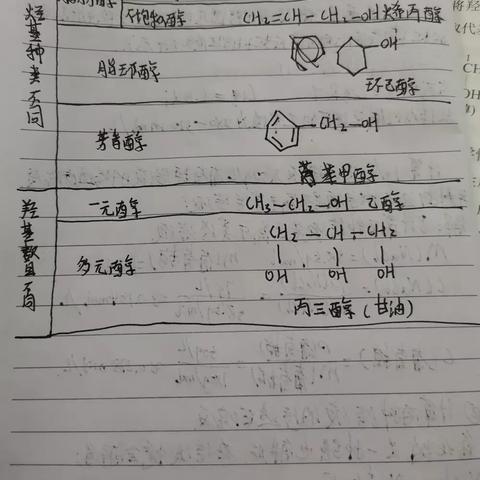 不饱和醇 CH₂=CH-CH₂-OH 烯丙醇
烃基种类不同
脂环醇
OH
环己醇
芳香醇
CH₂-OH
苯甲醇
羟基数目不同
一元醇 CH₃-CH₂-OH 乙醇
多元醇 CH₂-CH-CH₂
OH OH OH
丙三醇(甘油)
将羟
代
CH
OH